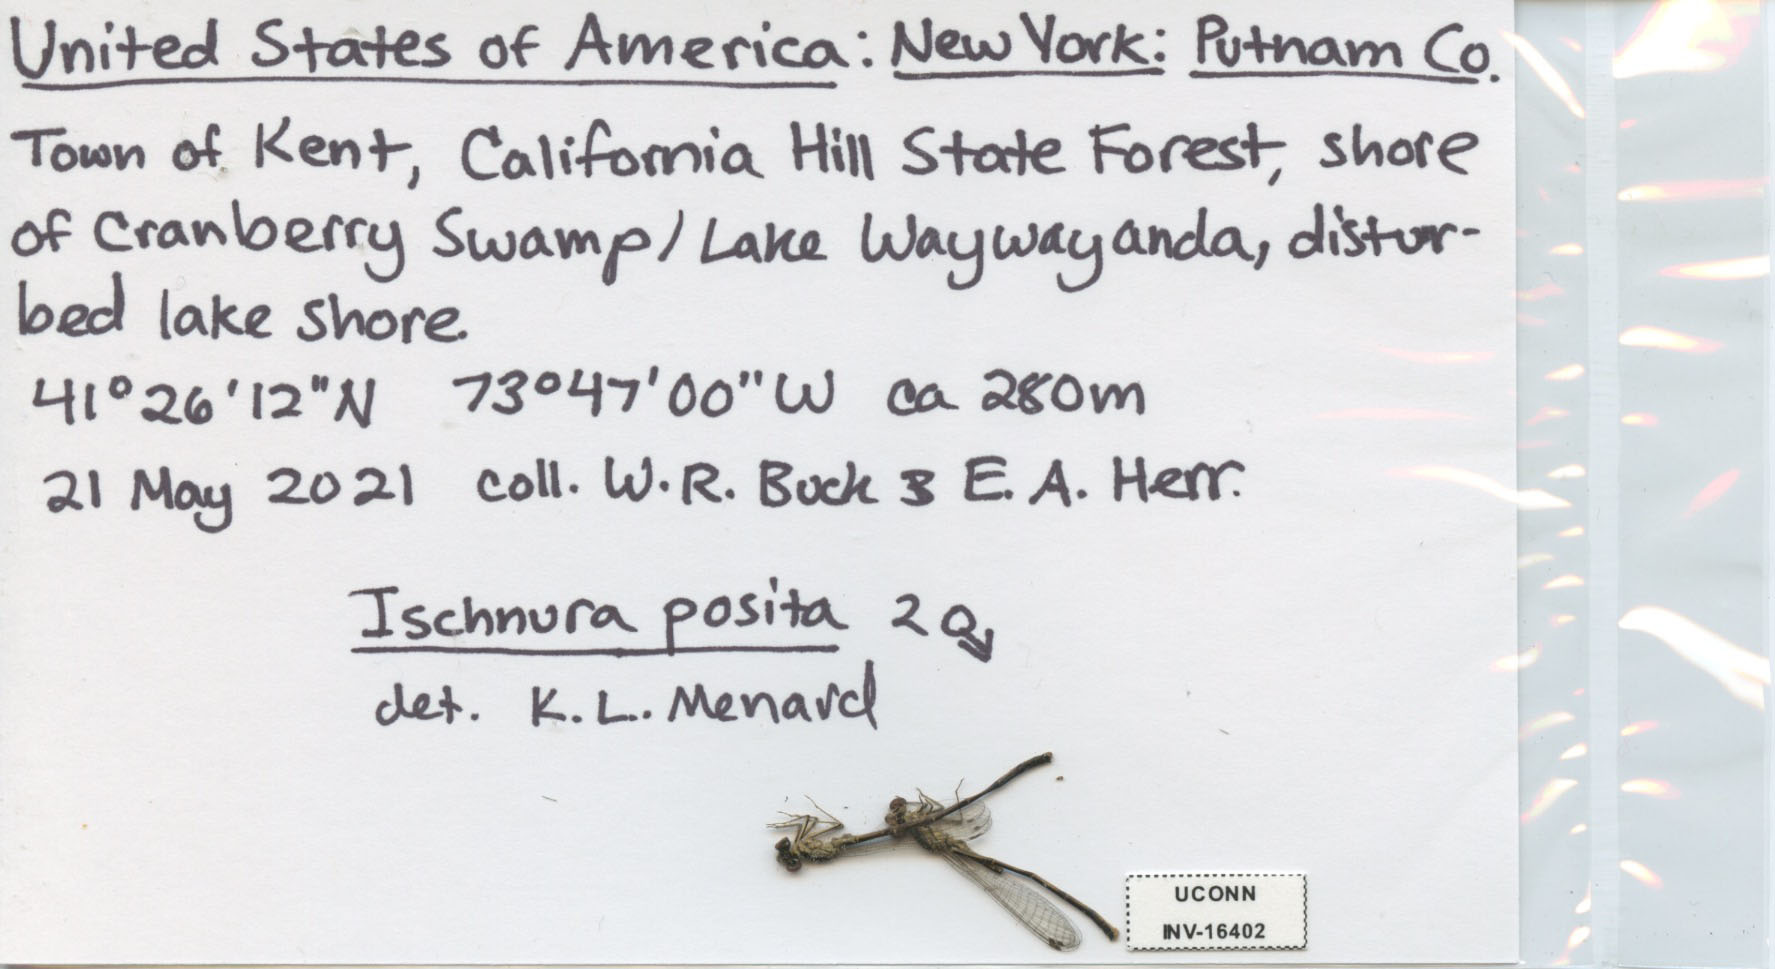 United States of America: New York: Putnam Co.
Town of Kent, California Hill State Forest, shore
of Cranberry Swamp/Lake Waywayanda, distur-
bed lake shore.
41°26'12"N 73°47'00"W ca 280m
21 May 2021 coll. W.R. Buck & E.A. Herr.
Ischnura posita 2 ♂
det. K.L. Menard
UCONN
INV-16402